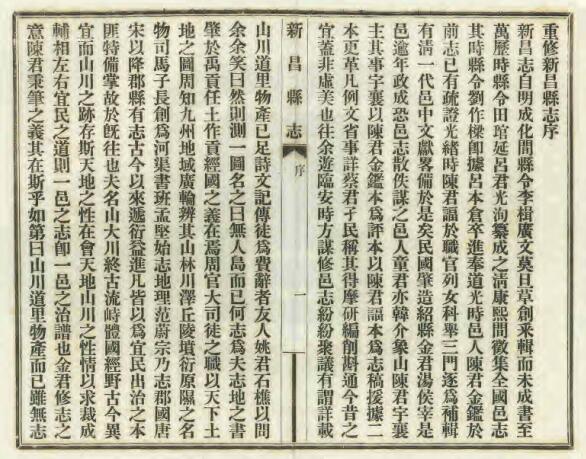 重修新昌縣志序
新昌志自明成化間縣令李楫廣文莫旦草創乘輯而未成書至
萬歷時縣令田琯延呂君光洵纂成之淸康熙間徵集全國邑志
其時縣令劉作樑卽據呂本倉卒進奉道光時邑人陳君金鑑於
前志已有疏證光緒時陳君謳於職官列女科舉三門逐爲補輯
有淸一代邑中文獻畧備於是矣民國肇造紹縣金君湯侯宰是
邑逾年政成恐邑志散佚謀之邑人童君亦韓介象山陳君宇襄
主其事宇襄以陳君金鑑本爲評本以陳君謳本爲志稿援據二
本更革凡例文省事詳蔡君孑民稱其得摩研編削斟通今昔之
宜蓋非虛美也往余遊臨安時方謀修邑志紛紛聚議有謂詳載
新昌縣志
序
一
山川道里物產已足詩文記傳徒爲費辭者友人姚君石樵以問
余余笑曰然則測一圖名之曰無人島而已何志爲夫志地之書
肇於禹貢任土作貢經國之義在焉周官大司徒之職以天下土
地之圖周知九州地域廣輪辨其山林川澤丘陵墳衍原隰之名
物司馬子長創爲河渠書班孟堅始志地理范蔚宗乃志郡國唐
宋以降郡縣有志古今以來遞衍益進凡皆以爲宜民出治之本
匪特備掌故於旣往也夫名山大川終古流峙體國經野古今異
宜而山川之跡存斯天地之性在會天地山川之性情以求裁成
輔相左右宜民之道則一邑之志卽一邑之治譜也金君修志之
意陳君秉筆之義其在斯乎如第曰山川道里物產而已雖無志